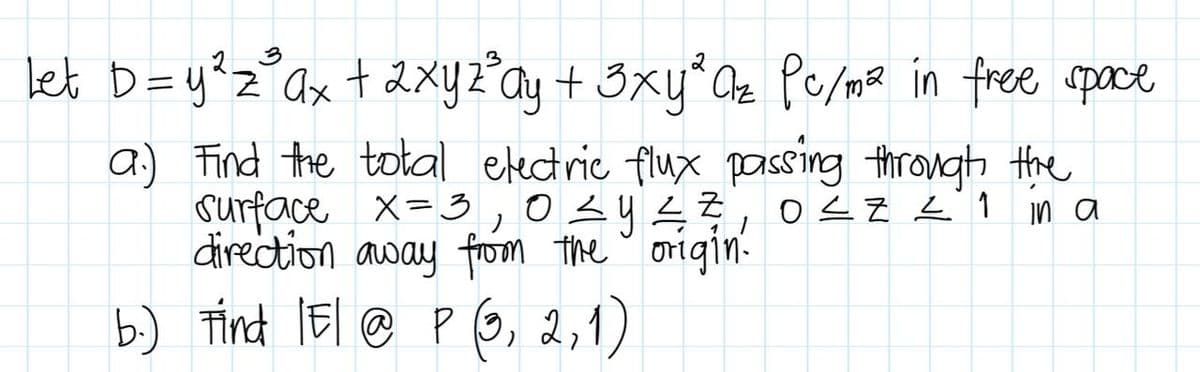 let D = y²z³ax + 2xyz³ay + 3xy²az Pc/m² in free space
a.) Find the total electric flux passing through the
surface x=3, 0 ≤ y ≤ z, 0 ≤ z ≤ 1 in a
direction away from the origin.
b.) Find |E| @ P (3, 2, 1)